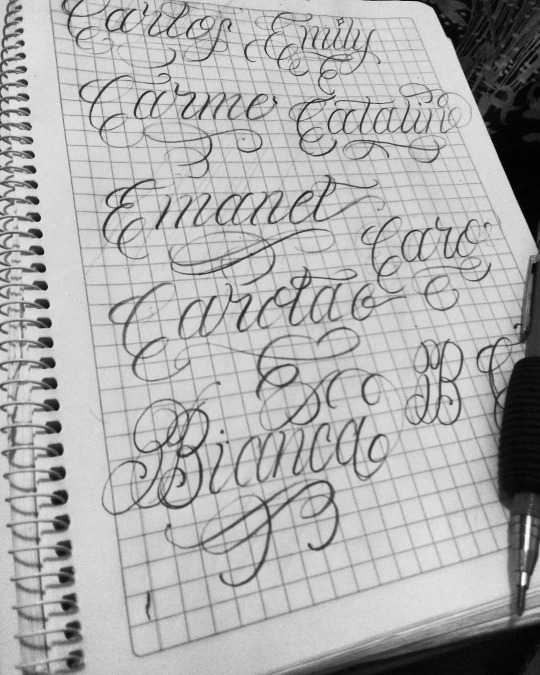 Carlos Emily
Carme Catalin
Emanet
Caro
Bianca B